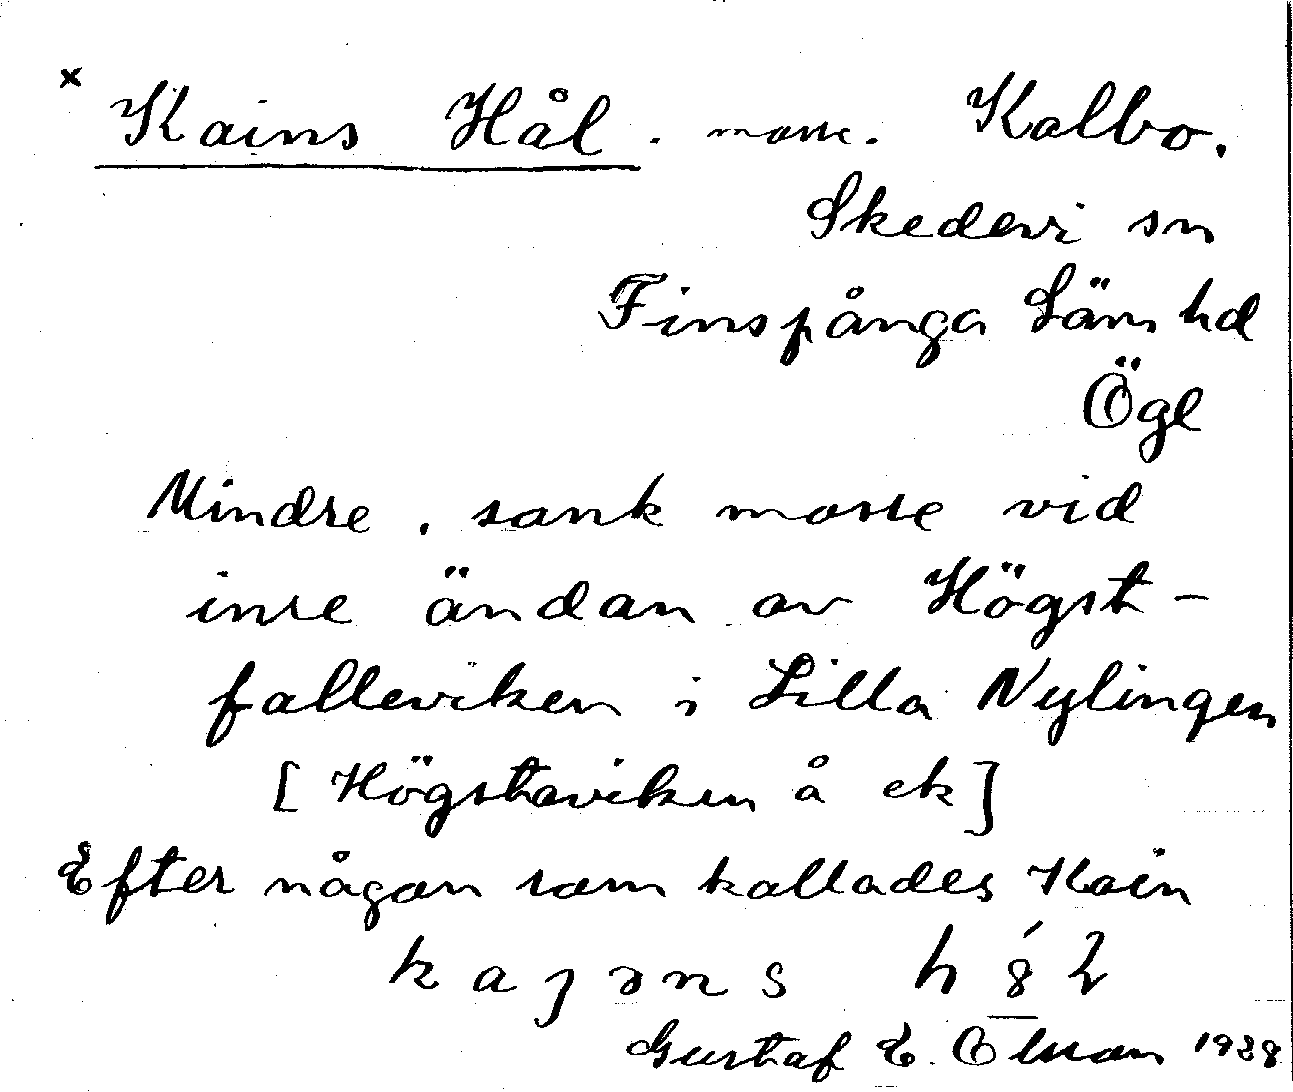 x Kains Hål. mosse. Kalbo.
Skedevi sn
Finspånga Läns hd
Ögl
Mindre, sank mosse vid
inre ändan av Högst-
falleviken i Lilla Nylingen
[Högstaviken å ek]
Efter någon som kallades Kain
kajɘns
Gustaf E. Olsson 1938